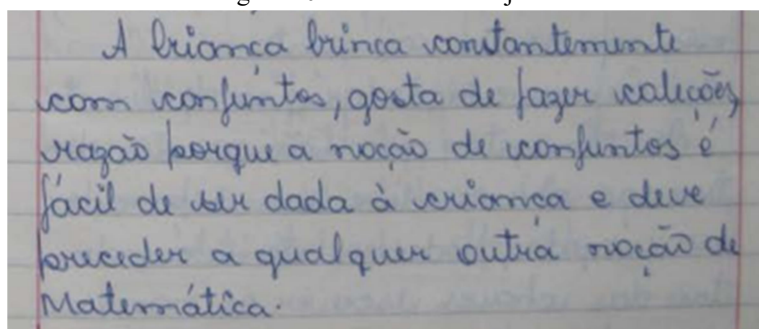 A criança brinca constantemente
com conjuntos, gosta de fazer coleções,
razão porque a noção de conjuntos é
fácil de ser dada à criança e deve
preceder a qualquer outra noção de
Matemática.